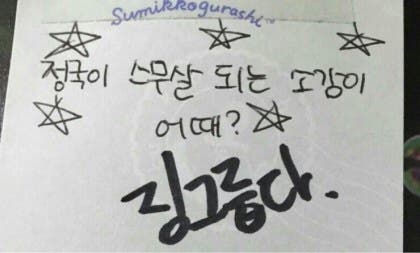 Sumikkogurashi™
정국이 스무살 되는 소감이
어때?
징그릅다.